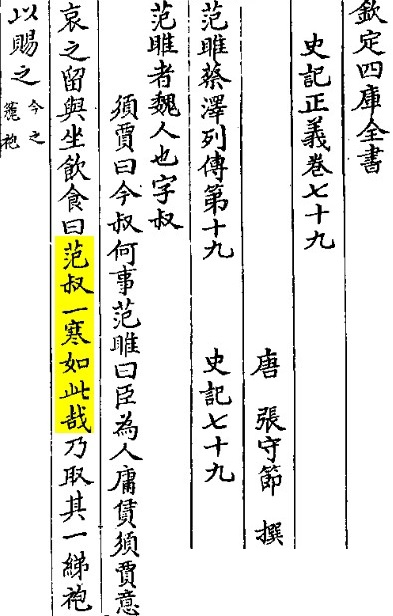 欽定四庫全書
史記正義卷七十九
唐 張守節 撰
范睢蔡澤列傳第十九 史記七十九
范睢者魏人也字叔
須賈曰今叔何事范睢曰臣為人庸賃須賈意
哀之留與坐飲食曰范叔一寒如此哉乃取其一綈袍
以賜之今之麄袍